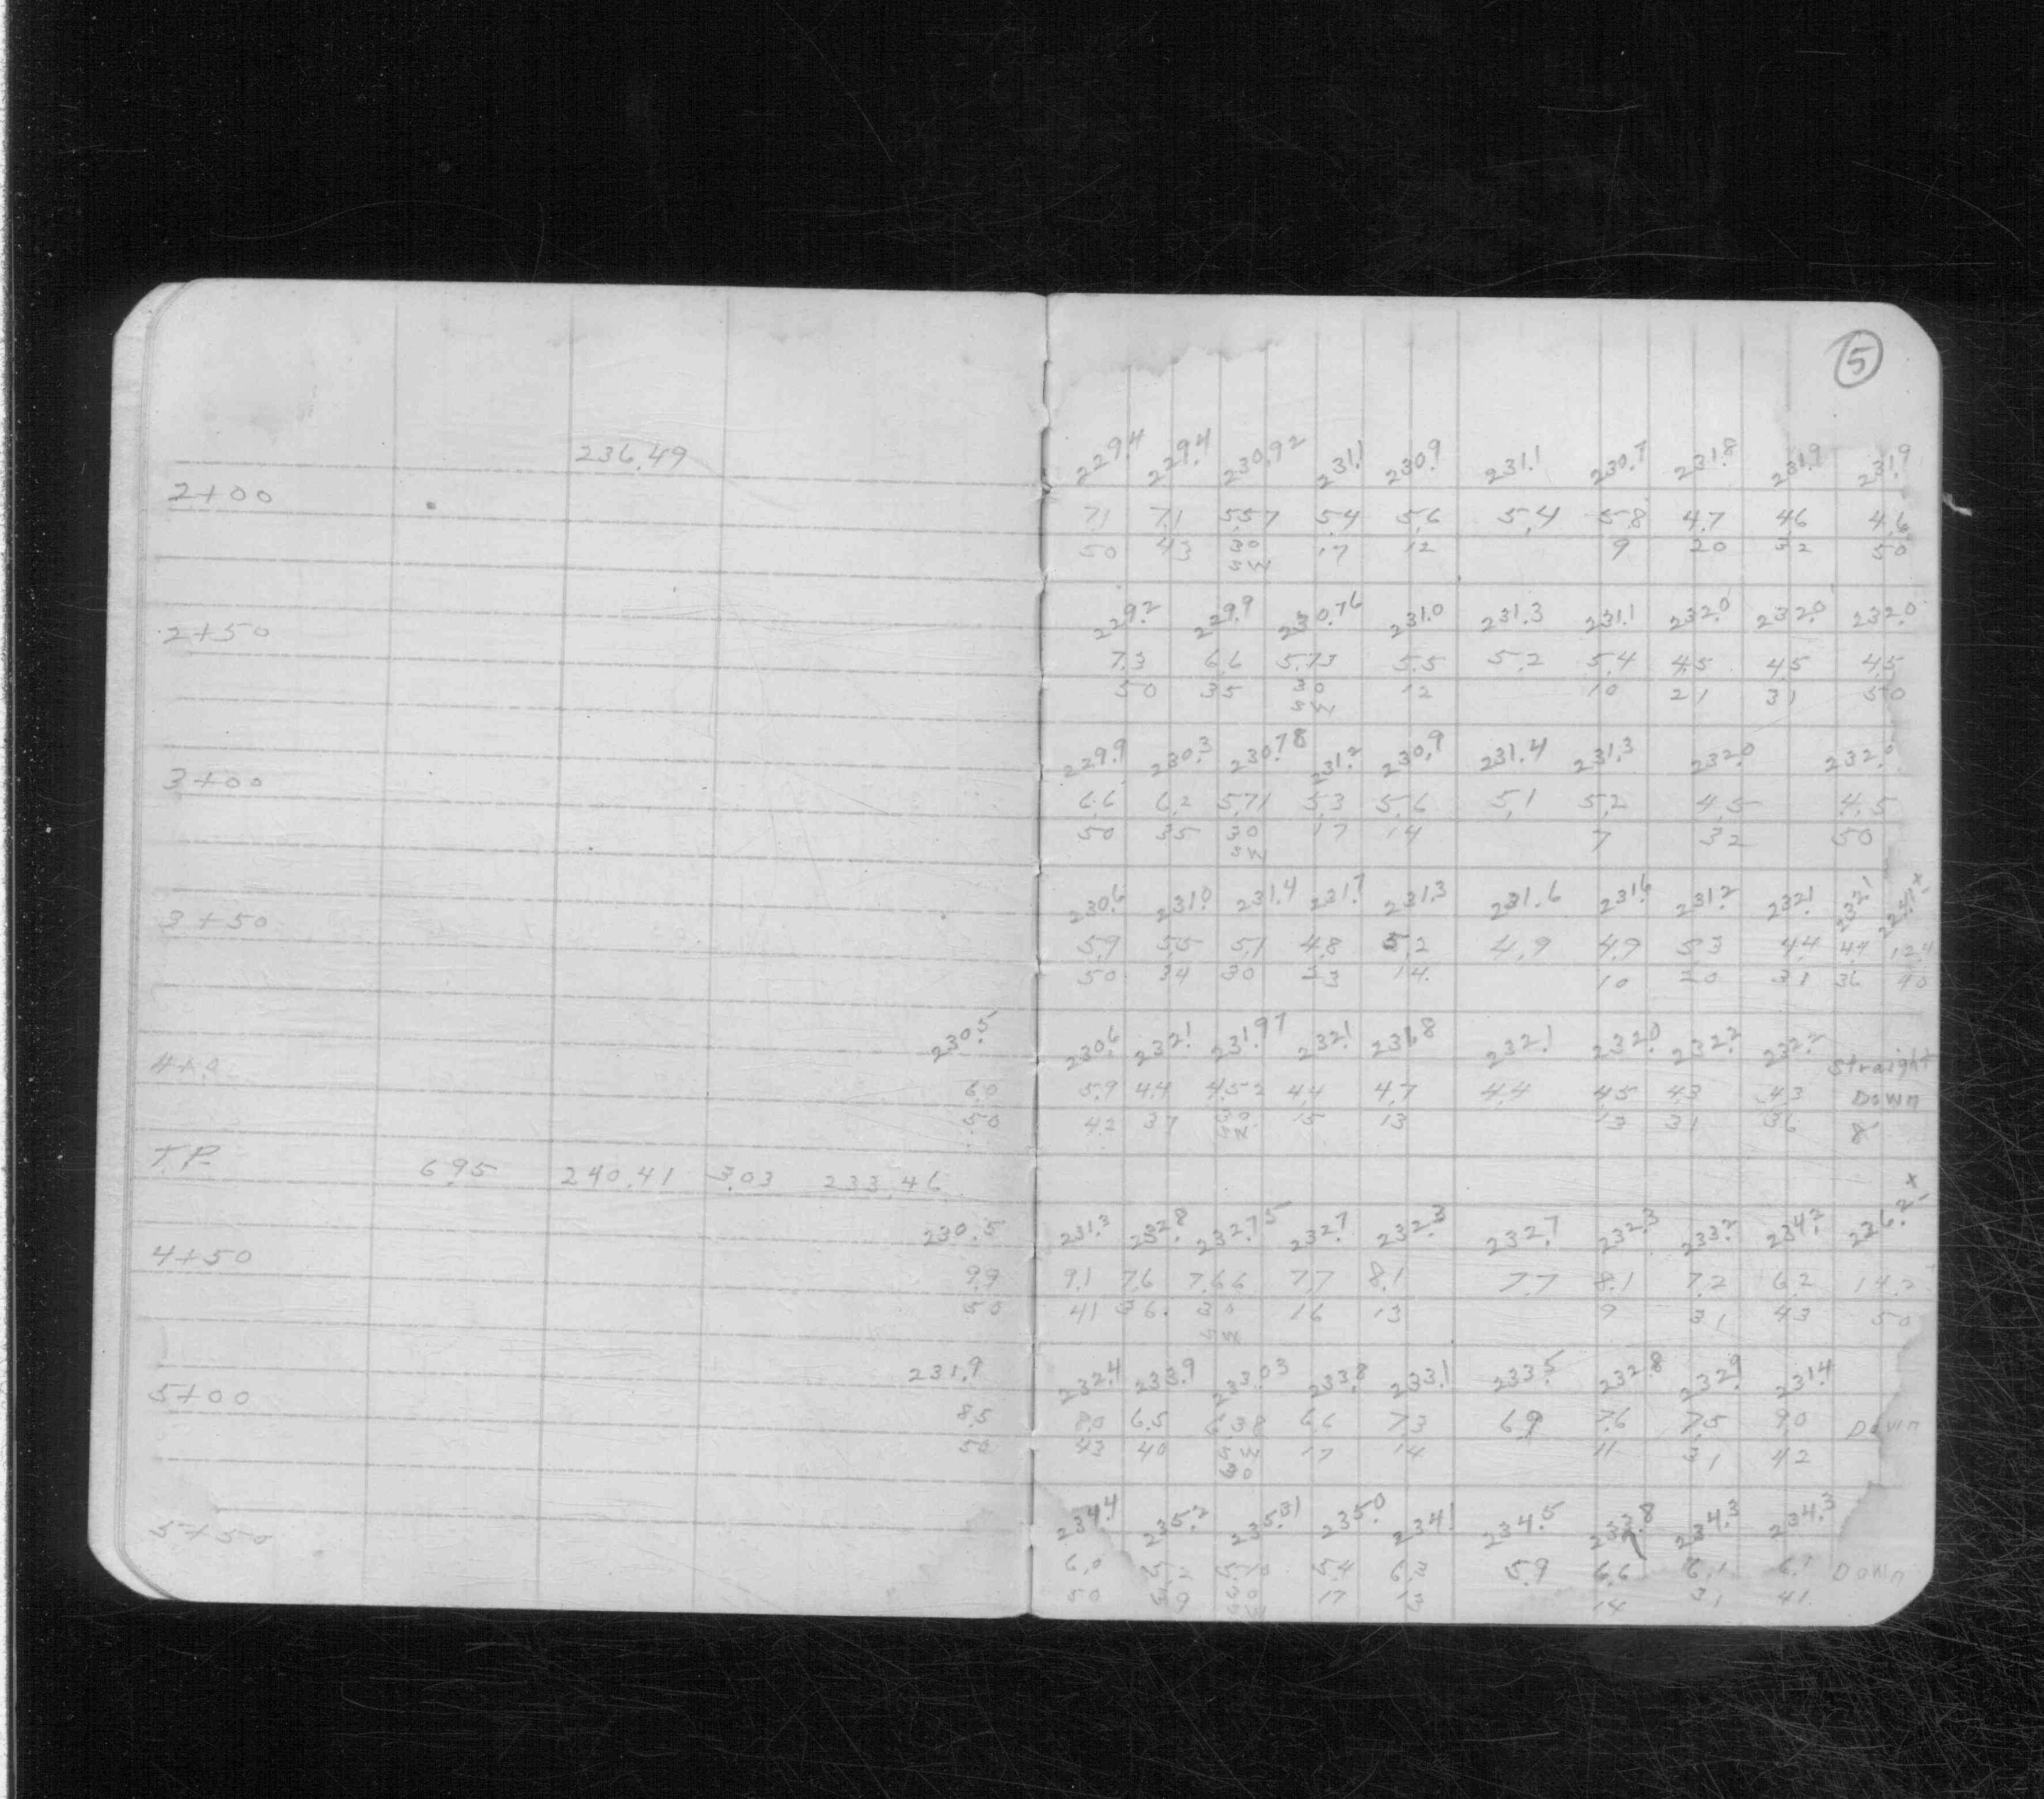 5
236.49
229.4 229.4 230.92 231.1 230.9 231.1 230.7 231.8 231.9 231.9
2+00
7.1 7.1 5.57 5.4 5.6 5.4 5.8 4.7 4.6 4.6
50 43 30 17 12 9 20 32 50
SW
229.2 229.9 230.76 231.0 231.3 231.1 232.0 232.0 232.0
2+50
7.3 6.6 5.73 5.5 5.2 5.4 4.5 4.5 4.5
50 35 30 12 10 21 31 50
SW
229.9 230.3 230.78 231.2 230.9 231.4 231.3 232.0 232.0
3+00
6.6 6.2 5.71 5.3 5.6 5.1 5.2 4.5 4.5
50 35 30 17 14 7 32 50
SW
230.6 231.0 231.4 231.7 231.3 231.6 231.6 231.2 232.1 232.1 224.1 x
3+50
5.9 5.5 5.1 4.8 5.2 4.9 4.9 5.3 4.4 4.4 12.4
50 34 30 23 14 10 20 31 36 40
230.5 230.6 232.1 231.97 232.1 231.8 232.1 232.0 232.2 232.2 Straight
4+0
6.0 5.9 4.4 4.52 4.4 4.7 4.4 4.5 4.3 4.3 Down
50 42 37 30 15 13 13 31 36 8'
SW
T.P. 6.95 240.41 3.03 233.46
230.5 231.3 232.8 232.75 232.7 232.3 232.7 232.3 233.2 234.2 236.2 x
4+50
9.9 9.1 7.6 7.66 7.7 8.1 7.7 8.1 7.2 6.2 14.2
50 41 36 30 16 13 9 31 43 50
SW
231.9 232.4 233.9 233.03 233.8 233.1 233.5 232.8 232.9 231.4
5+00
8.5 8.0 6.5 6.38 6.6 7.3 6.9 7.6 7.5 9.0 Down
50 43 40 SW 17 14 11 31 42
30
234.4 235.2 235.31 235.0 234.1 234.5 233.8 234.3 234.3
5+50
6.0 5.2 5.10 5.4 6.3 5.9 6.6 6.1 6.1 Down
50 39 30 17 13 14 31 41
SW